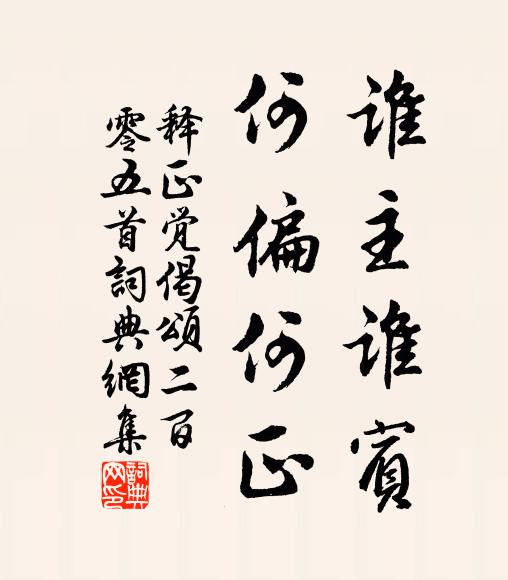 谁主谁賓
何偏何正
释正觉偈頌二百
零五首詞典網集
詞典网印